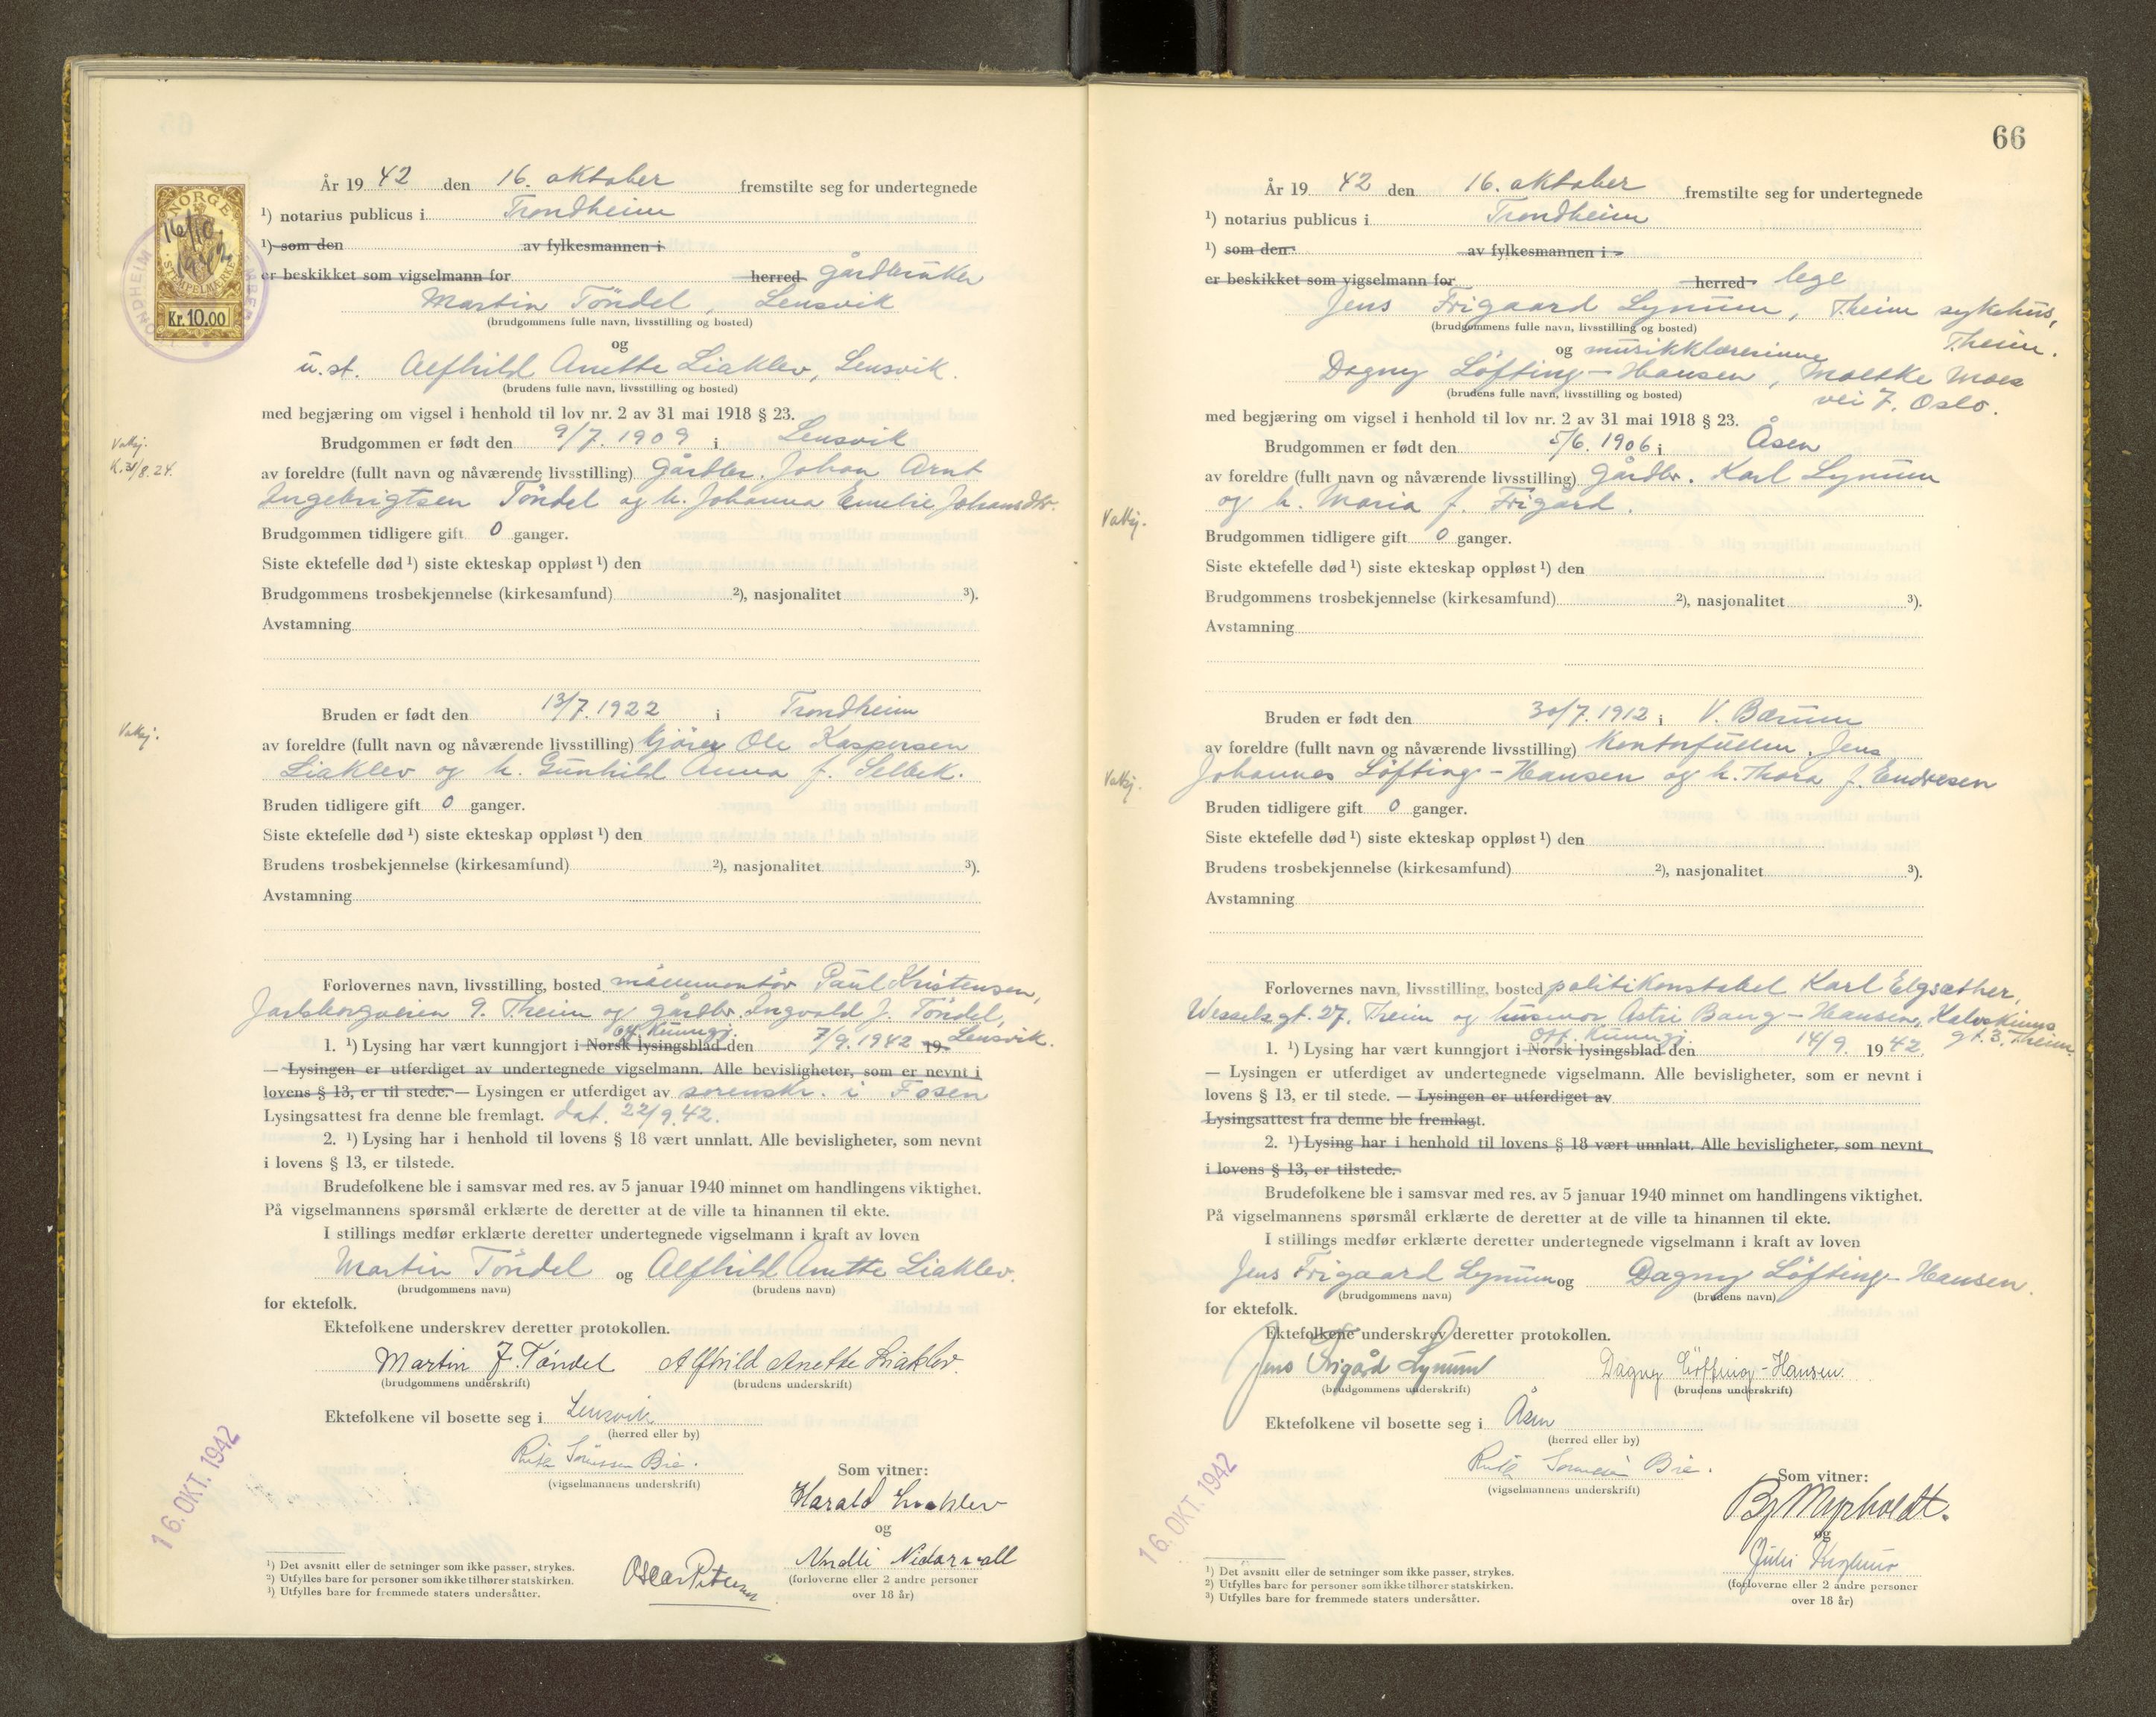 År 19 42 den 16. oktober fremstilte seg for undertegnede
¹) notarius publicus i Trondheim
¹) som den av fylkesmannen i
er beskikket som vigselmann for herred gårdbruker
Martin Töndel, Lensvik
(brudgommens fulle navn, livsstilling og bosted)
og
u.st. Alfhild Anette Liaklev, Lensvik.
(brudens fulle navn, livsstilling og bosted)
med begjæring om vigsel i henhold til lov nr. 2 av 31 mai 1918 § 23.
Brudgommen er født den 9/7. 1909 i Lensvik
av foreldre (fullt navn og nåværende livsstilling) Gårdbr. Johan Arnt
Ingebrigtsen Töndel og h. Johanna Emelie Johansdtr.
Brudgommen tidligere gift 0 ganger.
Siste ektefelle død ¹) siste ekteskap oppløst ¹) den
Brudgommens trosbekjennelse (kirkesamfund) ²), nasjonalitet ³).
Avstamning
Bruden er født den 13/7. 1922 i Trondheim
av foreldre (fullt navn og nåværende livsstilling) Ole Kaspersen
Liaklev og h. Gunhild Anna f. Selbek.
Bruden tidligere gift 0 ganger.
Siste ektefelle død ¹) siste ekteskap oppløst ¹) den
Brudens trosbekjennelse (kirkesamfund) ²), nasjonalitet ³).
Avstamning
Forlovernes navn, livsstilling, bosted Paul Kristensen,
Jarlsborgveien 9. Theim og gårdbr. Ingvald J. Töndel,
Lensvik.
off. Kunngj.
1. ¹) Lysing har vært kunngjort i Norsk lysingsblad den 7/9. 1942 19
— Lysingen er utferdiget av undertegnede vigselmann. Alle bevisligheter, som er nevnt i
lovens § 13, er til stede. — Lysingen er utferdiget av sorenskr. i Fosen
Lysingsattest fra denne ble fremlagt. dat. 22/9. 42.
2. ¹) Lysing har i henhold til lovens § 18 vært unnlatt. Alle bevisligheter, som nevnt
i lovens § 13, er tilstede.
Brudefolkene ble i samsvar med res. av 5 januar 1940 minnet om handlingens viktighet.
På vigselmannens spørsmål erklærte de deretter at de ville ta hinannen til ekte.
I stillings medfør erklærte deretter undertegnede vigselmann i kraft av loven
Martin Töndel og Alfhild Anette Liaklev.
(brudgommens navn) (brudens navn)
for ektefolk.
Ektefolkene underskrev deretter protokollen.
Martin J. Töndel Alfhild Anette Liaklev.
(brudgommens underskrift) (brudens underskrift)
Ektefolkene vil bosette seg i Lensvik
(herred eller by)
Bie.
(vigselmannens underskrift)
Som vitner:
Harald Liaklev
og
Oscar Petersen
(forloverne eller 2 andre personer
over 18 år)
¹) Det avsnitt eller de setninger som ikke passer, strykes.
²) Utfylles bare for personer som ikke tilhører statskirken.
³) Utfylles bare for fremmede staters undersåtter.
NORGE
16/10.
1942
STEMPELMERKE
Kr. 10.00
Vattj.
K. 31/8.24.
Vattj.
16. OKT. 1942
66
År 19 42 den 16. oktober fremstilte seg for undertegnede
¹) notarius publicus i Trondheim
¹) som den av fylkesmannen i
er beskikket som vigselmann for herred lege
Jens Frigaard Lynum, Theim sykehus,
Theim.
(brudgommens fulle navn, livsstilling og bosted)
og musikklærerinne
Dagny Löfting-Hansen, Moltke Moes
vei 7. Oslo.
(brudens fulle navn, livsstilling og bosted)
med begjæring om vigsel i henhold til lov nr. 2 av 31 mai 1918 § 23.
Brudgommen er født den 5/6. 1906 i Åsen
av foreldre (fullt navn og nåværende livsstilling) Gårdbr. Karl Lynum
og h. Maria f. Frigård.
Vattj.
Brudgommen tidligere gift 0 ganger.
Siste ektefelle død ¹) siste ekteskap oppløst ¹) den
Brudgommens trosbekjennelse (kirkesamfund) ²), nasjonalitet ³).
Avstamning
Bruden er født den 30/7. 1912 i V. Bærum
av foreldre (fullt navn og nåværende livsstilling) Kontorfullm. Jens
Johannes Löfting-Hansen og h. Thora f. Endresen
Vattj.
Bruden tidligere gift 0 ganger.
Siste ektefelle død ¹) siste ekteskap oppløst ¹) den
Brudens trosbekjennelse (kirkesamfund) ²), nasjonalitet ³).
Avstamning
Forlovernes navn, livsstilling, bosted politikonstabel Karl Elgsæther,
Wesselsgt. 27. Theim og husmor Astri Bang-Hansen, Kalvskinns
gt. 3, Theim.
Off. Kunngj.
1. ¹) Lysing har vært kunngjort i Norsk lysingsblad den 14/9. 19 42
— Lysingen er utferdiget av undertegnede vigselmann. Alle bevisligheter, som er nevnt i
lovens § 13, er til stede. — Lysingen er utferdiget av
Lysingsattest fra denne ble fremlagt.
2. ¹) Lysing har i henhold til lovens § 18 vært unnlatt. Alle bevisligheter, som nevnt
i lovens § 13, er tilstede.
Brudefolkene ble i samsvar med res. av 5 januar 1940 minnet om handlingens viktighet.
På vigselmannens spørsmål erklærte de deretter at de ville ta hinannen til ekte.
I stillings medfør erklærte deretter undertegnede vigselmann i kraft av loven
Jens Frigaard Lynum og Dagny Löfting-Hansen.
(brudgommens navn) (brudens navn)
for ektefolk.
Ektefolkene underskrev deretter protokollen.
Jens Frigård Lynum Dagny Löfting-Hansen.
(brudgommens underskrift) (brudens underskrift)
Ektefolkene vil bosette seg i Åsen
(herred eller by)
Bie.
(vigselmannens underskrift)
Som vitner:
og
(forloverne eller 2 andre personer
over 18 år)
¹) Det avsnitt eller de setninger som ikke passer, strykes.
²) Utfylles bare for personer som ikke tilhører statskirken.
³) Utfylles bare for fremmede staters undersåtter.
16. OKT. 1942